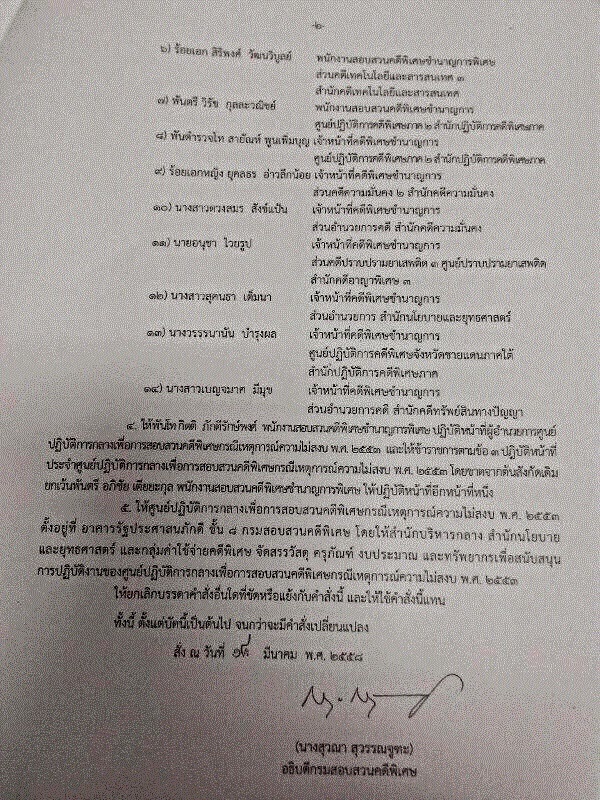 -๒-
๖) ร้อยเอก สิริพงศ์ วัฒนวิบูลย์ พนักงานสอบสวนคดีพิเศษชำนาญการพิเศษ
ส่วนคดีเทคโนโลยีและสารสนเทศ ๓
สำนักคดีเทคโนโลยีและสารสนเทศ
๗) พันตรี วิรัช กุลละวณิชย์ พนักงานสอบสวนคดีพิเศษชำนาญการ
ศูนย์ปฏิบัติการคดีพิเศษภาค ๒ สำนักปฏิบัติการคดีพิเศษภาค
๘) พันตำรวจโท สายัณห์ พูนเพิ่มบุญ เจ้าหน้าที่คดีพิเศษชำนาญการ
ศูนย์ปฏิบัติการคดีพิเศษภาค ๒ สำนักปฏิบัติการคดีพิเศษภาค
๙) ร้อยเอกหญิง ยุคลธร อ่าวลึกน้อย เจ้าหน้าที่คดีพิเศษชำนาญการ
ส่วนคดีความมั่นคง ๒ สำนักคดีความมั่นคง
๑๐) นางสาวดวงสมร สังข์แป้น เจ้าหน้าที่คดีพิเศษชำนาญการ
ส่วนอำนวยการคดี สำนักคดีความมั่นคง
๑๑) นายอนุชา ไวยรูป เจ้าหน้าที่คดีพิเศษชำนาญการ
ส่วนคดีปราบปรามยาเสพติด ๓ ศูนย์ปราบปรามยาเสพติด
สำนักคดีอาญาพิเศษ ๓
๑๒) นางสาวสุคนธา เต็มนา เจ้าหน้าที่คดีพิเศษชำนาญการ
ส่วนอำนวยการ สำนักนโยบายและยุทธศาสตร์
๑๓) นางวรรรนานัน บำรุงผล เจ้าหน้าที่คดีพิเศษชำนาญการ
ศูนย์ปฏิบัติการคดีพิเศษจังหวัดชายแดนภาคใต้
สำนักปฏิบัติการคดีพิเศษภาค
๑๔) นางสาวเบญจมาศ มีมุข เจ้าหน้าที่คดีพิเศษชำนาญการ
ส่วนอำนวยการคดี สำนักคดีทรัพย์สินทางปัญญา
๔. ให้พันโท กิตติ ภักดีรักษ์พงศ์ พนักงานสอบสวนคดีพิเศษชำนาญการพิเศษ ปฏิบัติหน้าที่ผู้อำนวยการศูนย์
ปฏิบัติการกลางเพื่อการสอบสวนคดีพิเศษกรณีเหตุการณ์ความไม่สงบ พ.ศ. ๒๕๕๓ และให้ข้าราชการตามข้อ ๓ ปฏิบัติหน้าที่
ประจำศูนย์ปฏิบัติการกลางเพื่อการสอบสวนคดีพิเศษกรณีเหตุการณ์ความไม่สงบ พ.ศ. ๒๕๕๓ โดยขาดจากต้นสังกัดเดิม
ยกเว้นพันตรี อภิชัย เตียยะกุล พนักงานสอบสวนคดีพิเศษชำนาญการพิเศษ ให้ปฏิบัติหน้าที่อีกหน้าที่หนึ่ง
๕. ให้ศูนย์ปฏิบัติการกลางเพื่อการสอบสวนคดีพิเศษกรณีเหตุการณ์ความไม่สงบ พ.ศ. ๒๕๕๓
ตั้งอยู่ที่ อาคารรัฐประศาสนภักดี ชั้น ๘ กรมสอบสวนคดีพิเศษ โดยให้สำนักบริหารกลาง สำนักนโยบาย
และยุทธศาสตร์ และกลุ่มค่าใช้จ่ายคดีพิเศษ จัดสรรวัสดุ ครุภัณฑ์ งบประมาณ และทรัพยากรเพื่อสนับสนุน
การปฏิบัติงานของศูนย์ปฏิบัติการกลางเพื่อการสอบสวนคดีพิเศษกรณีเหตุการณ์ความไม่สงบ พ.ศ. ๒๕๕๓
ให้ยกเลิกบรรดาคำสั่งอื่นใดที่ขัดหรือแย้งกับคำสั่งนี้ และให้ใช้คำสั่งนี้แทน
ทั้งนี้ ตั้งแต่บัดนี้เป็นต้นไป จนกว่าจะมีคำสั่งเปลี่ยนแปลง
สั่ง ณ วันที่ ๑๘ มีนาคม พ.ศ. ๒๕๕๘
(นางสุวณา สุวรรณจูฑะ)
อธิบดีกรมสอบสวนคดีพิเศษ